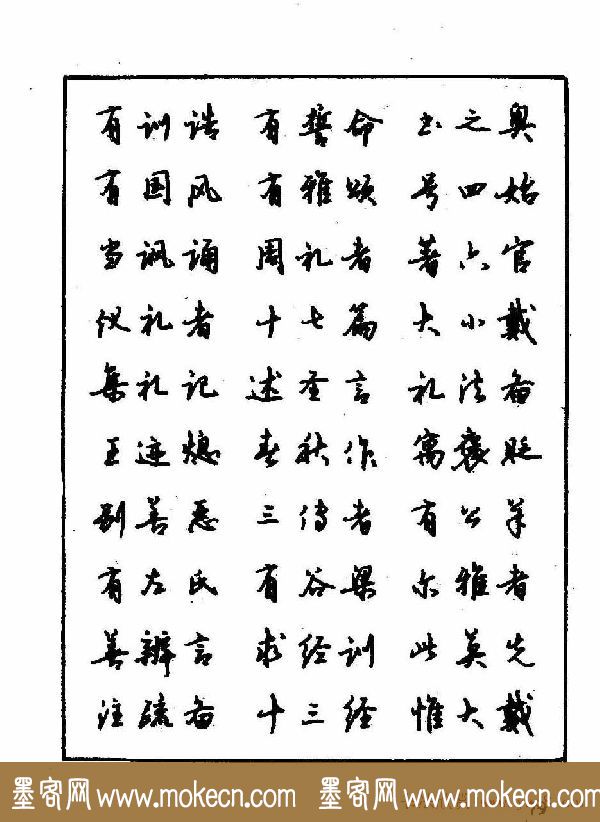 有训诰 有誓命 书之奥
有国风 有雅颂 号四始
当讽诵 周礼者 著六官
仪礼者 十七篇 大小戴
集礼记 述圣言 礼法备
王迹熄 春秋作 寓褒贬
别善恶 三传者 有公羊
有左氏 有谷梁 尔雅者
善辨言 求经训 此莫先
注疏备 十三经 惟大戴
墨客网 www.mokecn.com 墨客网 www.mokecn.com